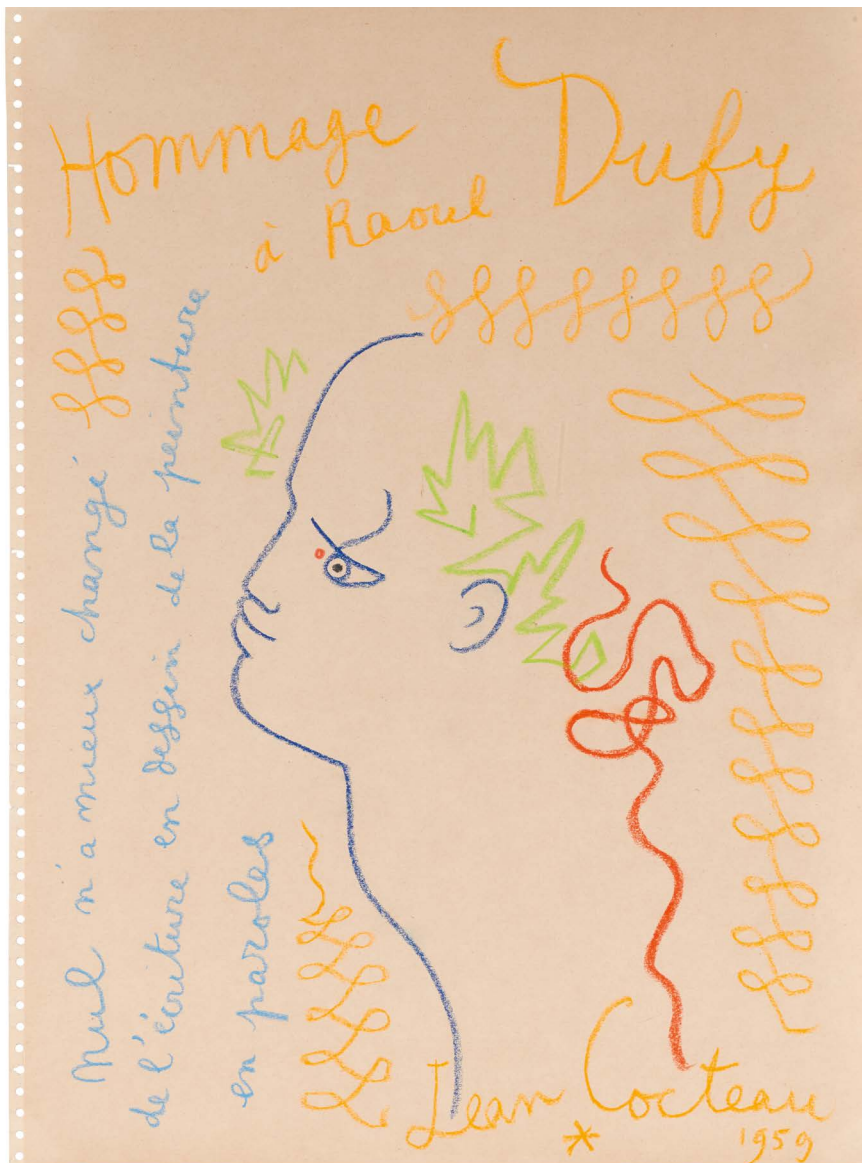 Hommage
à Raoul Dufy
Nul n'a mieux changé
de l'écriture en dessin de la peinture
en paroles
Jean Cocteau
1959